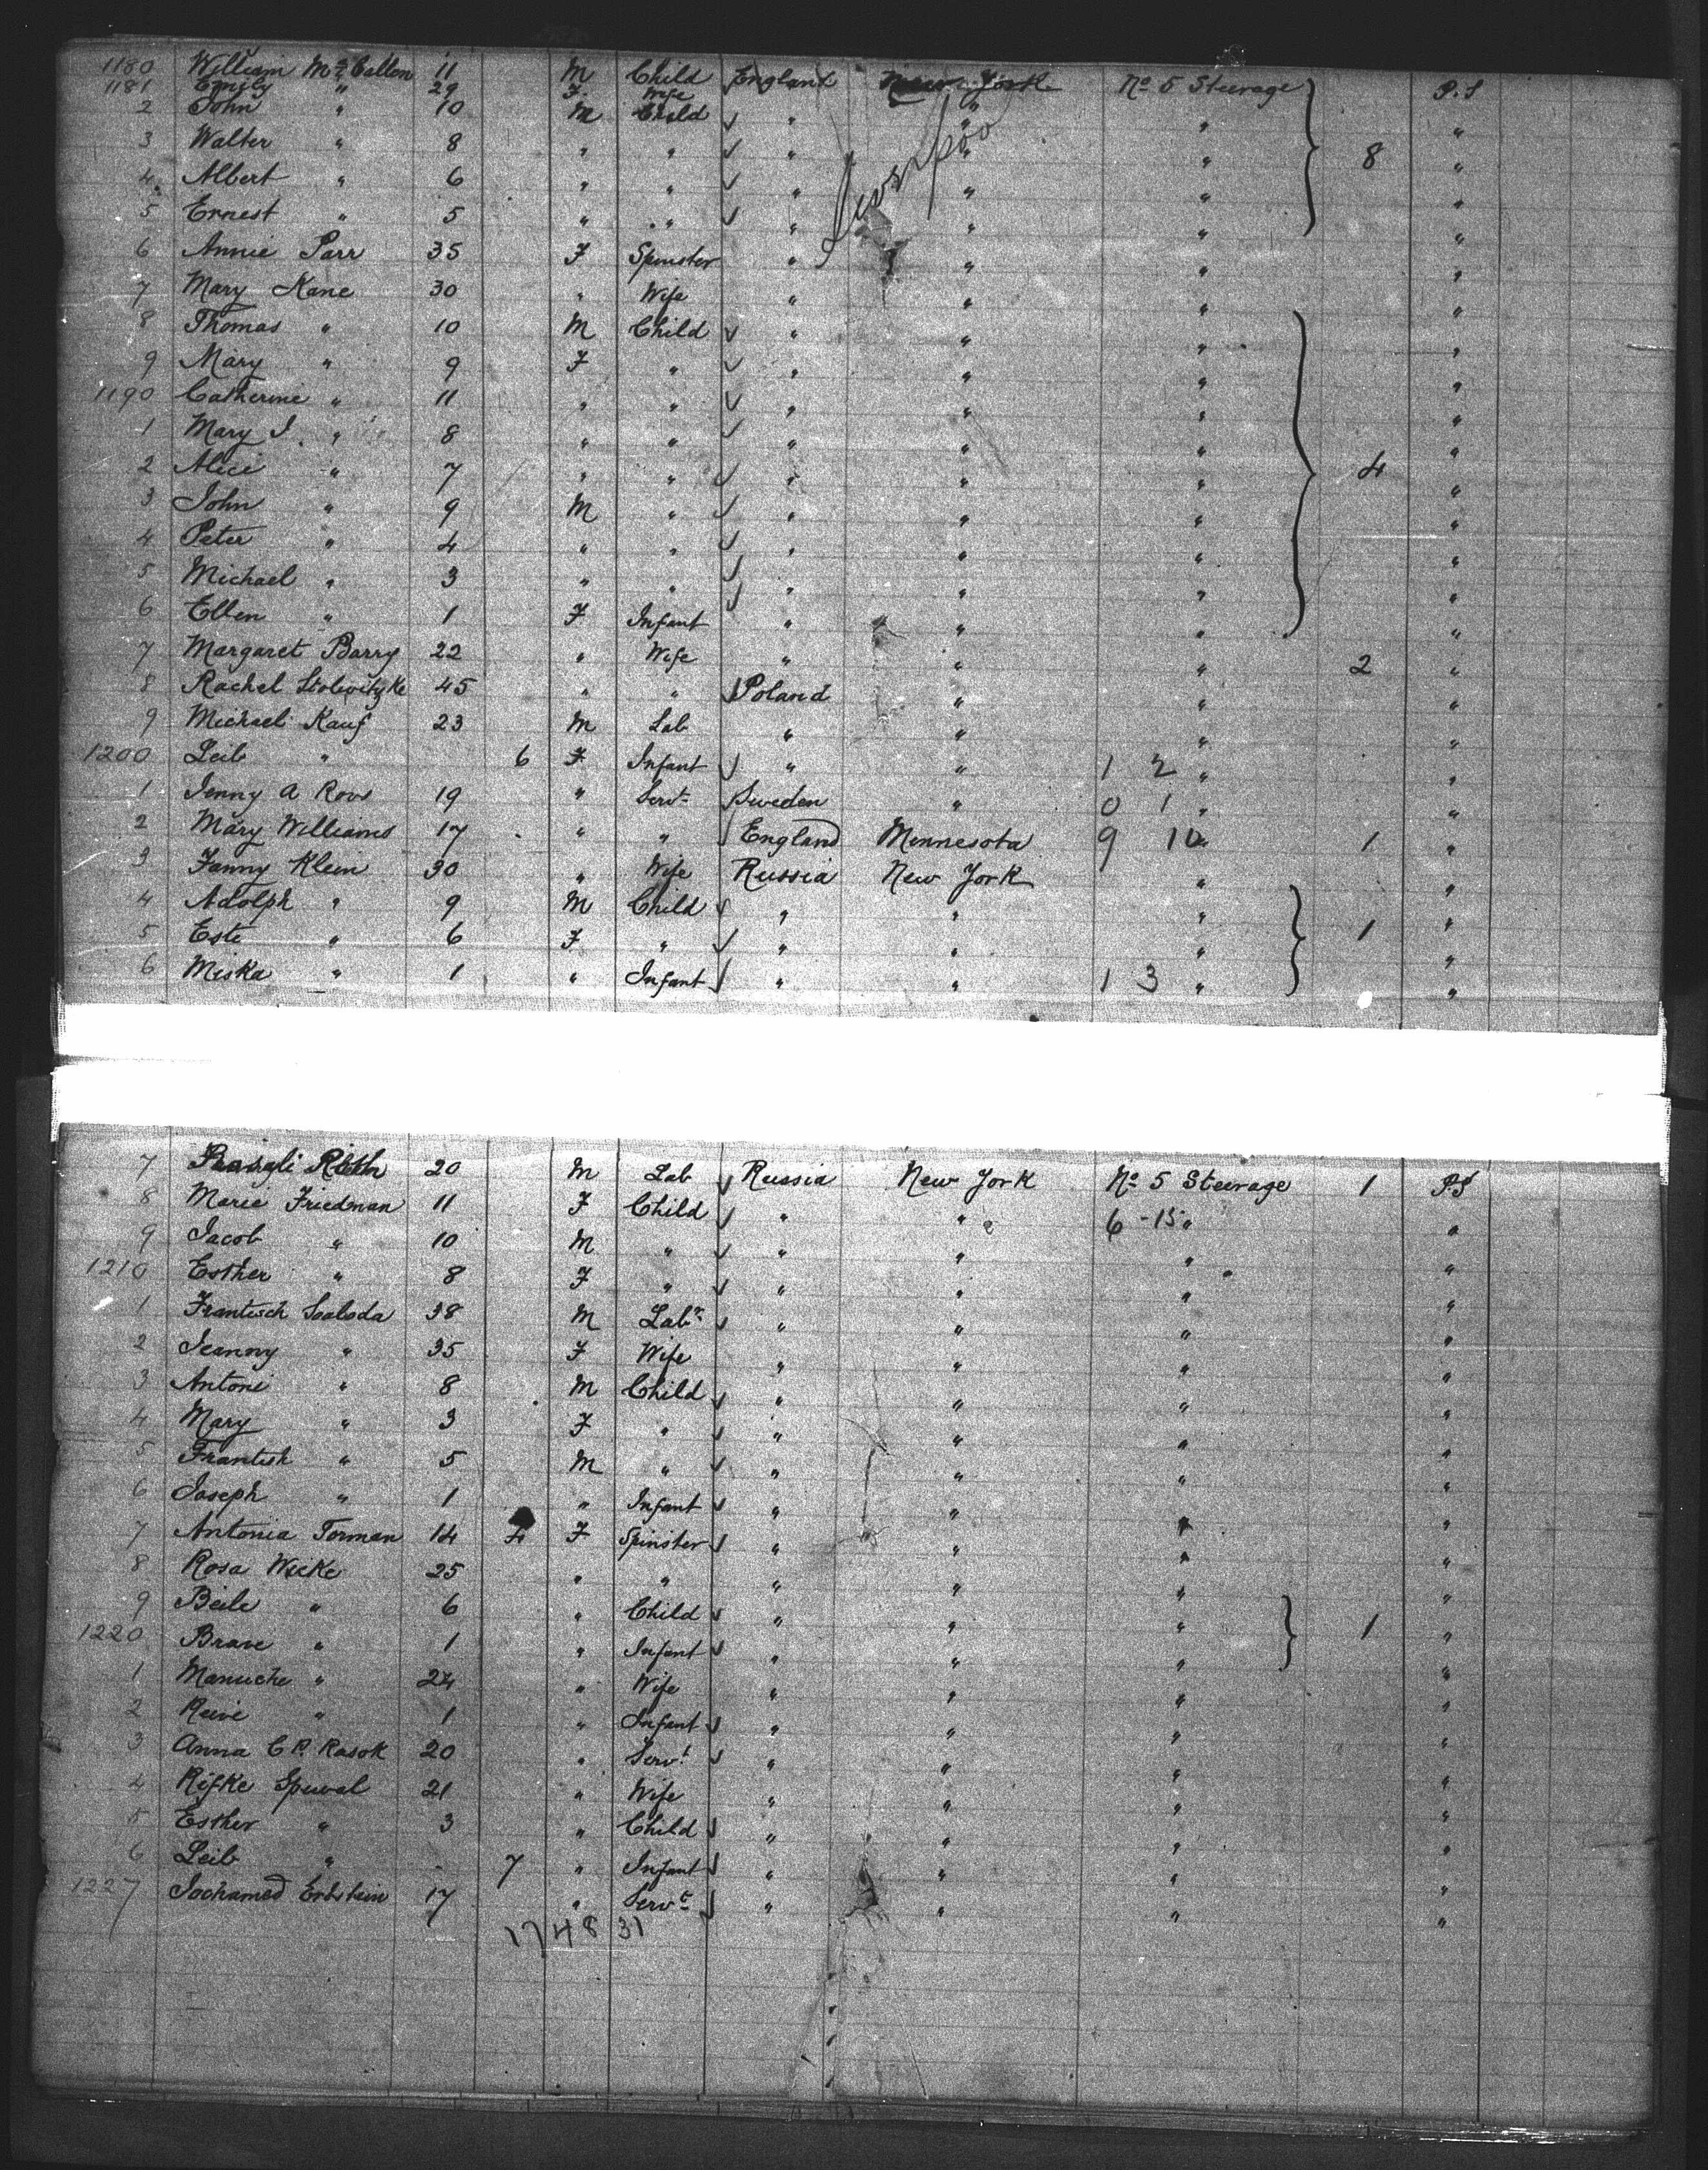 1180 William McCallon 11 M Child England New York No 5 Steerage P.S
1181 Emily " 29 F. Wife
2 John " 10 M Child " " " 8 "
3 Walter " 8 " " " " " "
4 Albert " 6 " " " " " "
5 Ernest " 5 " " " " " "
6 Annie Parr 35 F Spinster " " " "
7 Mary Kane 30 " Wife " " " "
8 Thomas " 10 M Child " " " "
9 Mary " 9 F " " " " "
1190 Catherine " 11 " " " " " "
1 Mary J. " 8 " " " " " "
2 Alice " 7 " " " " " 4 "
3 John " 9 M " " " " "
4 Peter " 4 " " " " " "
5 Michael " 3 " " " " " "
6 Ellen " 1 F Infant " " " "
7 Margaret Barry 22 " Wife " " " 2 "
8 Rachel 45 " " Poland " " "
9 Michael Kauf 23 M Lab " " " "
1200 Leib " 6 F Infant " " 1 2 " "
1 Jenny A 19 " Servt Sweden " 0 1 " "
2 Mary Williams 17 " " England Minnesota 9 10 " 1 "
3 Fanny Klein 30 " Wife Russia New York " "
4 Adolph " 9 M Child " " " 1 "
5 Este " 6 F " " " " "
6 Miska " 1 " Infant " " 1 3 " "
7 20 M Lab Russia New York No 5 Steerage 1 P.S
8 Marie Friedman 11 F Child " " 6 - 15 " "
9 Jacob " 10 M " " " " "
1210 Esther " 8 F " " " " "
1 Frantisch Soaboda 38 M Labr " " " "
2 Jeanny " 35 F Wife " " " "
3 Antoni " 8 M Child " " " "
4 Mary " 3 F " " " " "
5 Frantish " 5 M " " " " "
6 Joseph " 1 " Infant " " " "
7 Antonia Torman 14 F Spinster " " " "
8 Rosa Wecke 25 " " " " " "
9 Beile " 6 " Child " " " 1 "
1220 Brave " 1 " Infant " " " "
1 Manuche " 24 " Wife " " " "
2 Reive " 1 " Infant " " " "
3 Anna C P. Rasok 20 " Servt " " " "
4 Rifke Spuval 21 " Wife " " " "
5 Esther " 3 " Child " " " "
6 Leib " 7 " Infant " " " "
1227 17 " Servt " " " "
17 48 31